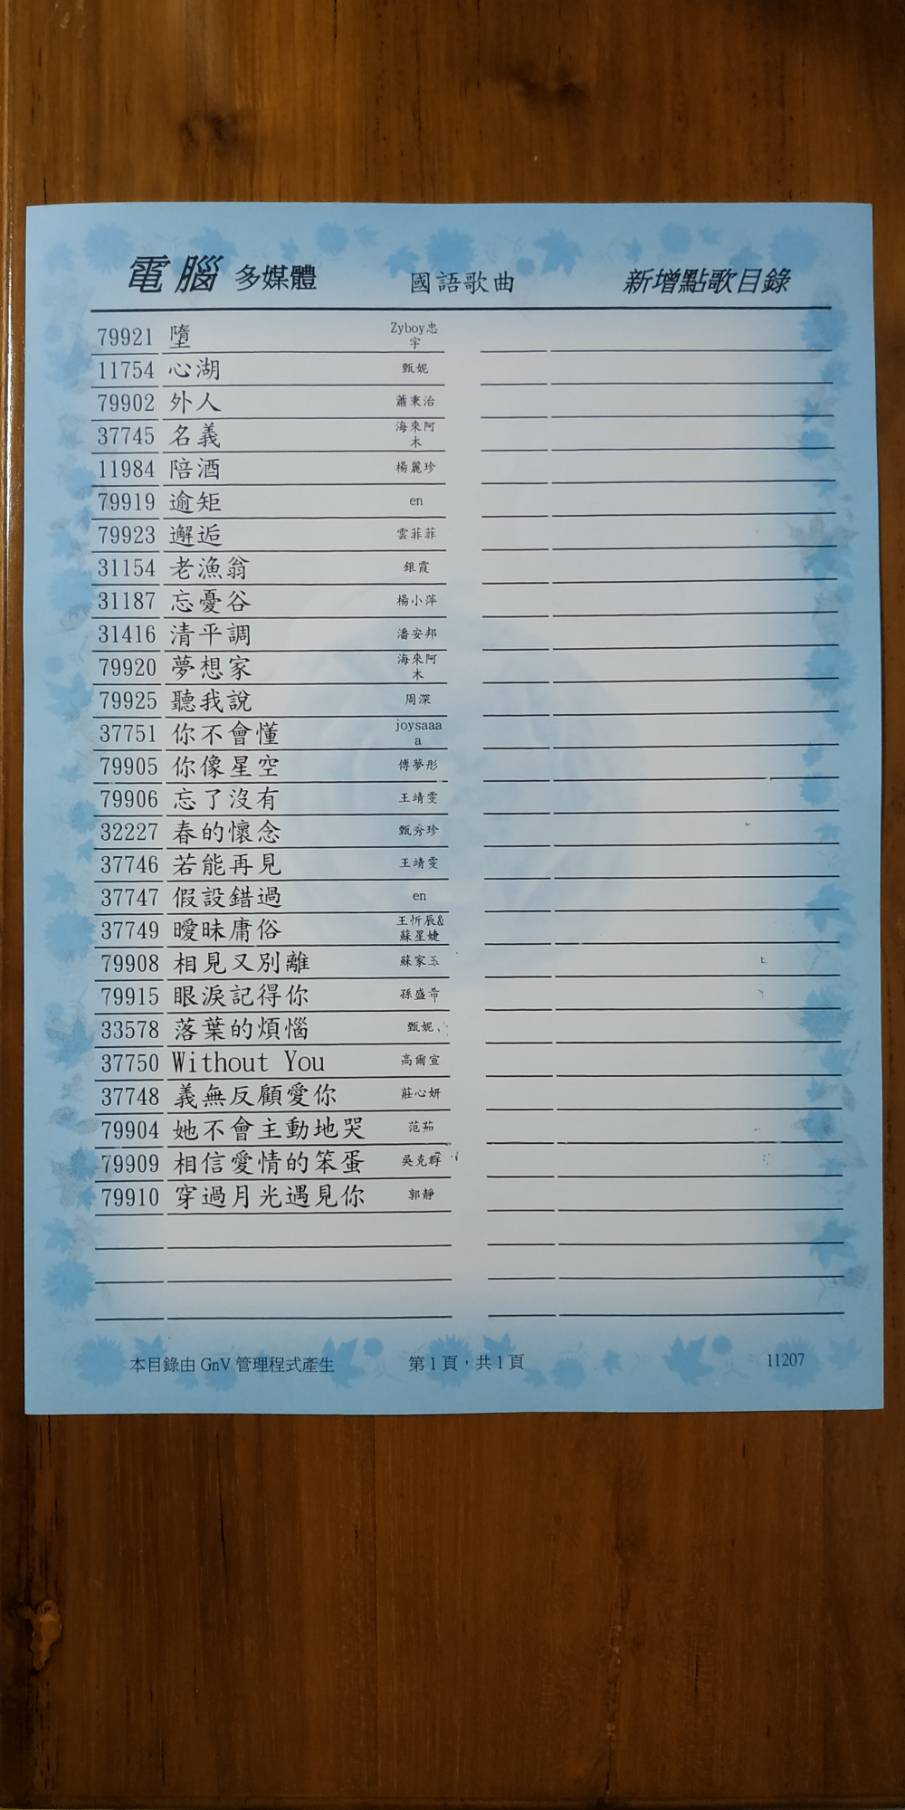 電腦 多媒體 國語歌曲 新增點歌目錄
79921 墮 Zyboy忠宇
11754 心湖 甄妮
79902 外人 蕭秉治
37745 名義 海來阿木
11984 陪酒 楊麗珍
79919 逾矩 en
79923 邂逅 雲菲菲
31154 老漁翁 銀霞
31187 忘憂谷 楊小萍
31416 清平調 潘安邦
79920 夢想家 海來阿木
79925 聽我說 周深
37751 你不會懂 joysaaaa
79905 你像星空 傅夢彤
79906 忘了沒有 王靖雯
32227 春的懷念 甄秀珍
37746 若能再見 王靖雯
37747 假設錯過 en
37749 曖昧庸俗 王忻辰&蘇星婕
79908 相見又別離 蘇家玉
79915 眼淚記得你 孫盛希
33578 落葉的煩惱 甄妮
37750 Without You 高爾宣
37748 義無反顧愛你 莊心妍
79904 她不會主動地哭 范茹
79909 相信愛情的笨蛋 吳克群
79910 穿過月光遇見你 郭靜
本目錄由 GnV 管理程式產生 第1頁，共1頁 11207